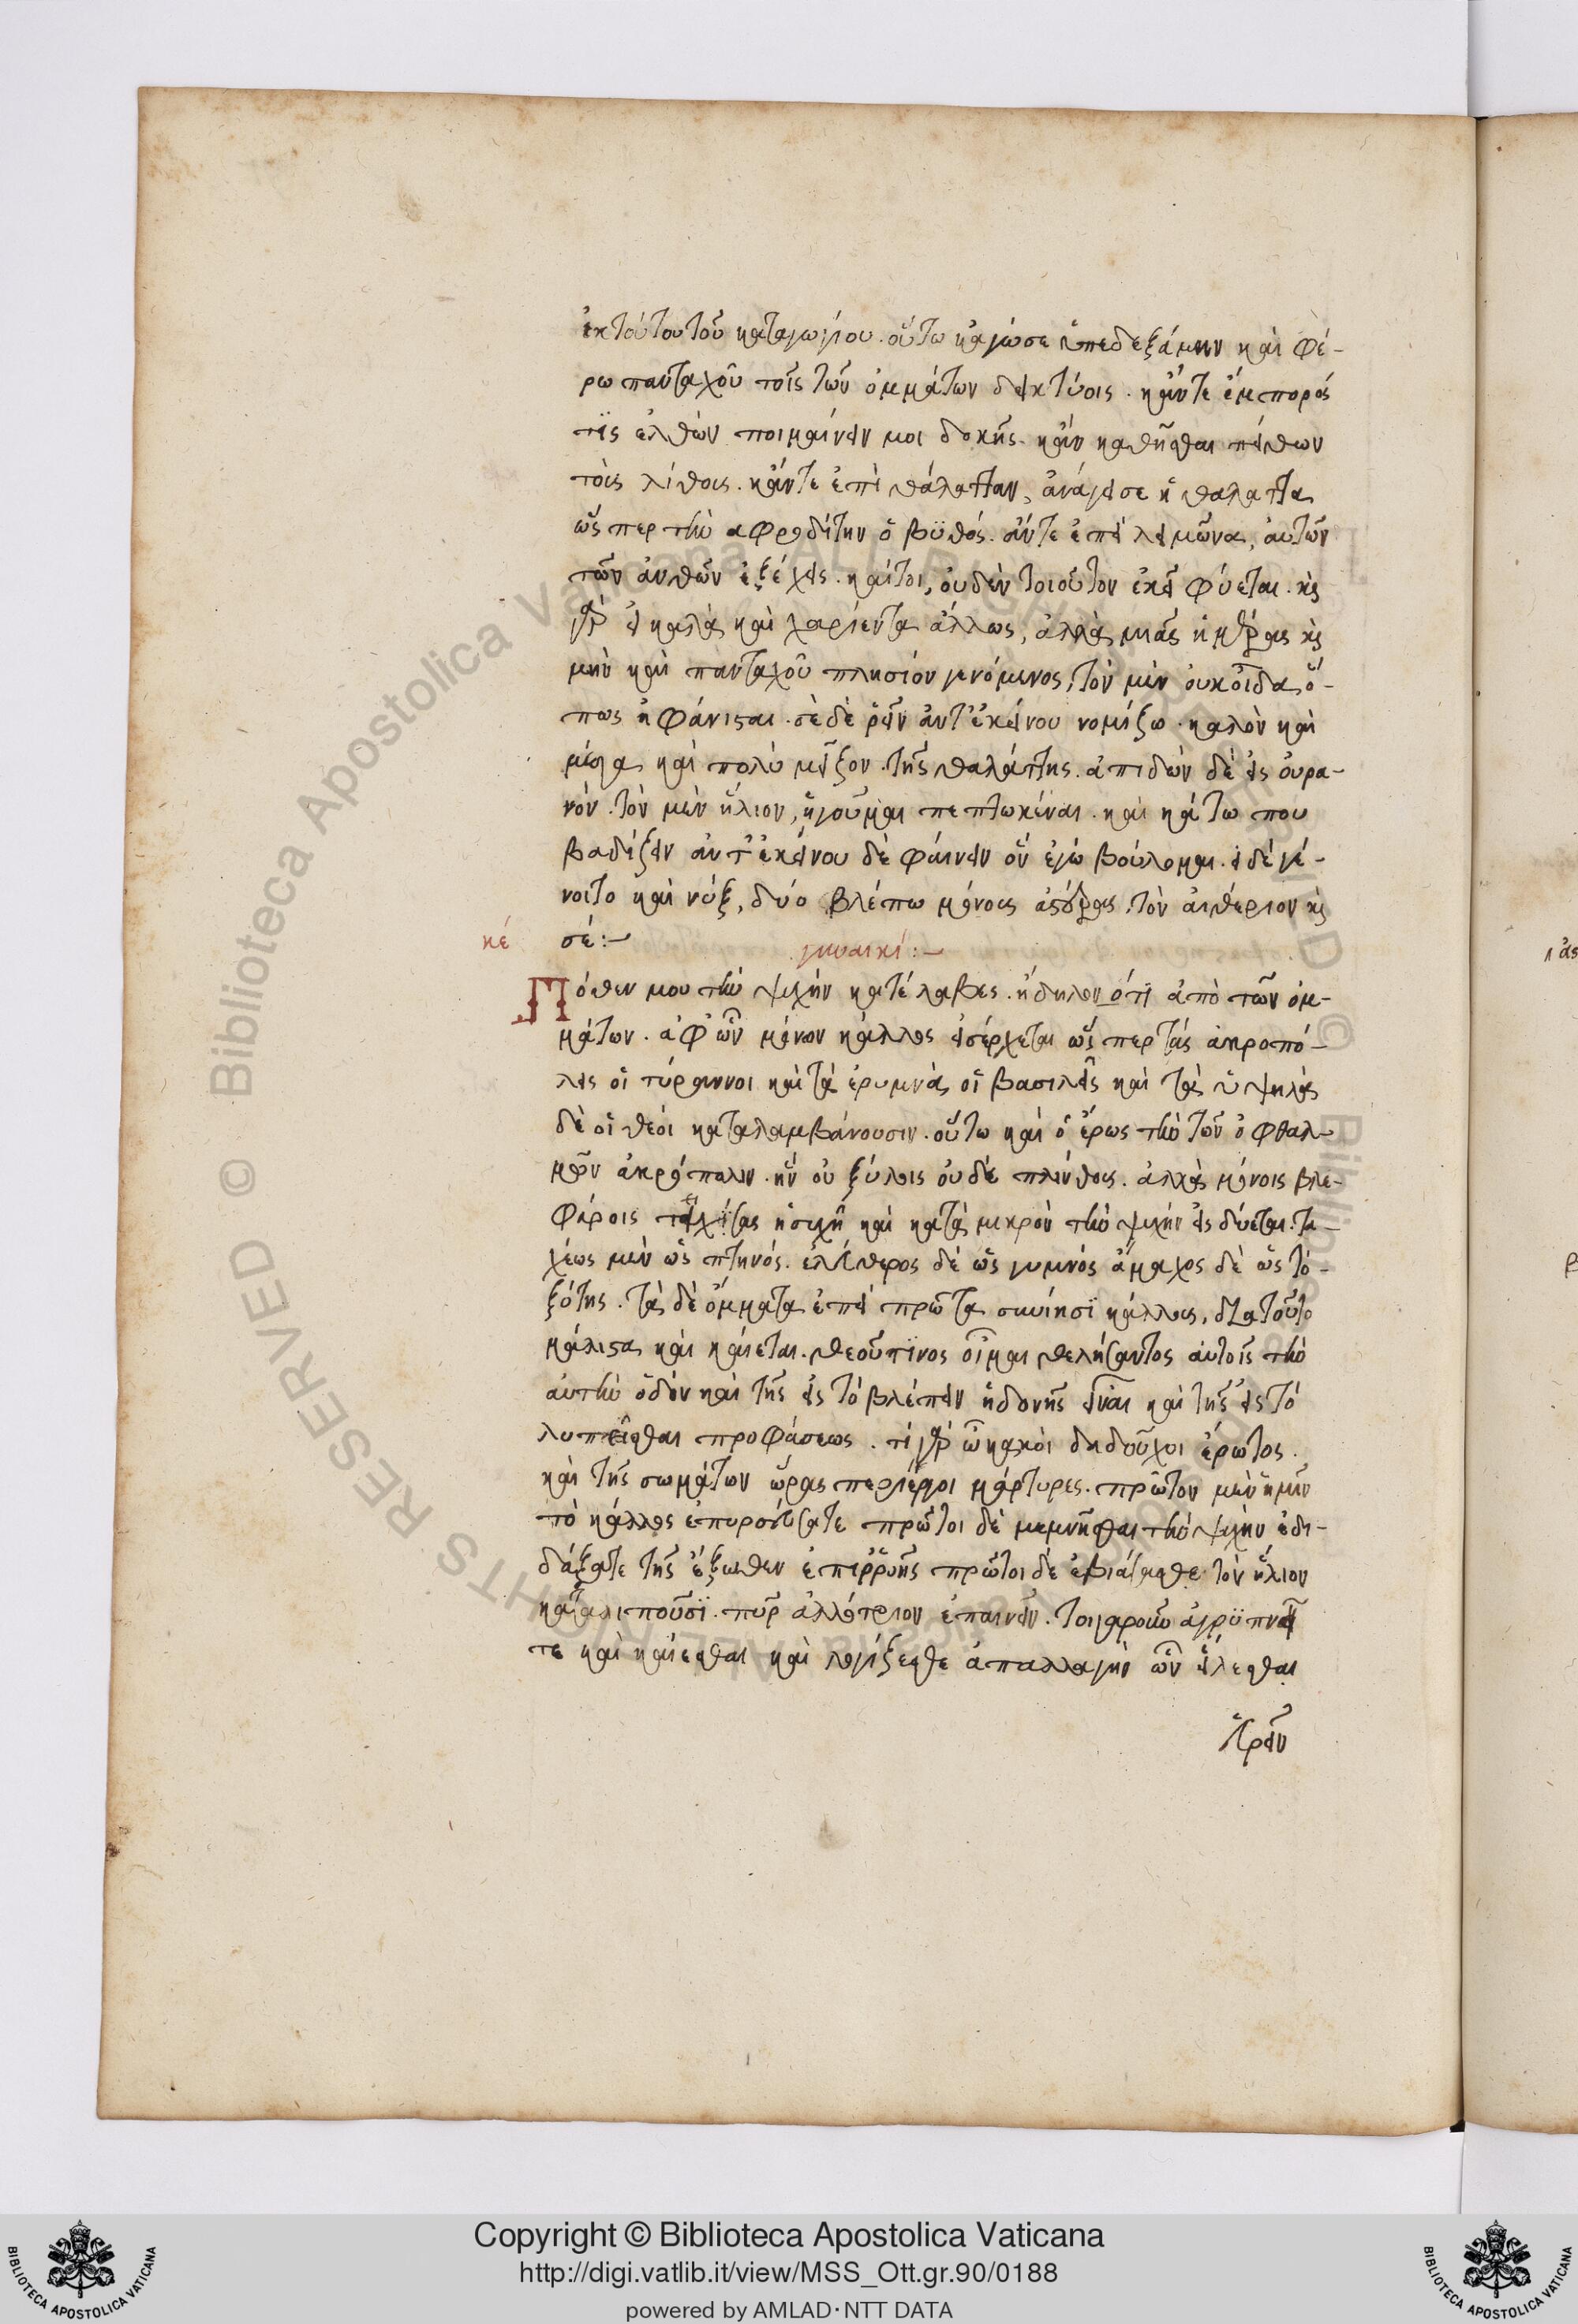 ἐκ τούτου τοῦ καταγωγίου. οὕτω κᾀγώ σε ὑπεδεξάμην καὶ φέ-
ρω πανταχοῦ τοῖς τῶν ὀμμάτων δεικτύοις. κἄντε ἐμπορός
τις ἐλθὼν ποιμαίνειν μοι δοκῆς. κἂν καθῆσθαι πείθων
τοὶς λίθοις. κἄντε ἐπὶ θάλατταν, ἀνάγει σε ἡ θαλαττα
ὥσπερ τὴν αφροδίτην ὁ βϋθός. ἄντε ἐπὶ λειμῶνα, ἀυτῶν
τῶν ἀνθῶν ἐξέχεις. καίτοι, ὀυδὲν τοιοῦτον ἐκεῖ φύεται. κ(αὶ)
γὰρ εἰ καλὰ καὶ χαρίεντα ἄλλως, ἀλλὰ μιᾶς ἡμέρας κ(αὶ)
μὴν καὶ πανταχοῦ πλησίον γενόμενος, τὸν μὲν ὀυκ οἶδα ὅ-
πως ἠφάνισαι. σὲ δὲ ῥεῖν ἀντ' ἐκείνου νομίζω. καλὸν καὶ
μέγα καὶ πολὺ μεῖζον τῆς θαλάττης. ἀπιδὼν δὲ εἰς ὀυρα-
νόν. τὸν μὲν ἥλιον, ἡγοῦμαι πεπτωκέναι. καὶ κάτω που
βαδίζειν ἀντ' ἐκείνου δὲ φαίνειν ὃν ἐγὼ βούλομαι. εἰ δὲ γέ-
νοιτο καὶ νύξ, δύο βλέπω μόνους ἀστέρας, τὸν αἰθέριον κ(αὶ)
κέ σέ:~ γυναικί:~
Πόθεν μου τὴν ψυχὴν κατέλαβες. ἢ δηλον ότϊ ἀπὸ τῶν ὀμ-
μάτων. ἀφ' ὧν μόνον κάλλος εἰσέρχεται ὥσπερ τὰς ἀκροπό-
λεις οἱ τύραννοι καὶ τὰ ἐρυμνὰ οἱ βασιλεῖς καὶ τὰ ὑψηλὰ
δὲ οἱ θεόι καταλαμβάνουσιν. οὕτω καὶ ὁ ἔρως τὴν τῶν ὀφθαλ-
μῶν ἀκρόπολιν. ἣν οὐ ξύλοις ὀυδὲ πλίνθοις. ἀλλὰ μόνοις βλε-
φάροις τειχίσας ἡσυχῆ καὶ κατὰ μικρὸν τὴν ψυχὴν εἰς δύεται. τα-
χέως μὲν ὡς πτηνός. ἐλεύθερος δὲ ὡς γυμνός ἄμαχος δὲ ὡς το-
ξότης. τὰ δὲ ὄμματα ἐπεὶ πρῶτα συνίησϊ κάλλους, διατοῦτο
μάλιστα καὶ κάιεται. θεοῦ τϊνος οἶμαι θελήσαντος ἀυτοῖς τὴν
ἀυτὴν ὁδὸν καὶ τῆς εἰς τὸ βλέπειν ἡδονῆς εἶναι καὶ τῆς εἰς τὸ
λυπεῖσθαι προφάσεως. τί γὰρ ὦ κακόι δαδοῦχοι ἔρωτος.
καὶ τῆς σωμάτων ὥρας περίεργοι μάρτυρες. πρῶτον μὲν ἡμῖν
τὸ κάλλος ἐπυρσεύσατε πρῶτοι δὲ μεμνῆσθαι τὴν ψυχὴν ἐδι-
δάξατε τῆς ἔξωθεν ἐπιρροῆς πρῶτοι δὲ ἐβιάσασθε τὸν ἥλιον
καταλιποῦσϊ. πῦρ ἀλλότριον ἐπαινεῖν. τοιγαροῦν ἀγρϋπνεῖ
τε καὶ κάιεσθαι καὶ λογίζεσθε ἀπαλλαγὴν ὧν εἵλεσθαι
εὑρεῖν
Copyright © Biblioteca Apostolica Vaticana
http://digi.vatlib.it/view/MSS_Ott.gr.90/0188
powered by AMLAD·NTT DATA